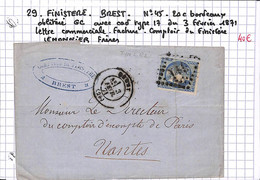 29. FINISTERE. BREST. N°45. 20c bordeaux
oblitéré GC avec cad type 17 du 3 février 1871
lettre commerciale. Facture Comptoir du Finistère
LEMONNIER Frères 40€
BREST
BREST
Monsieur Le Directeur
du comptoir d'escompte de Paris
Nantes